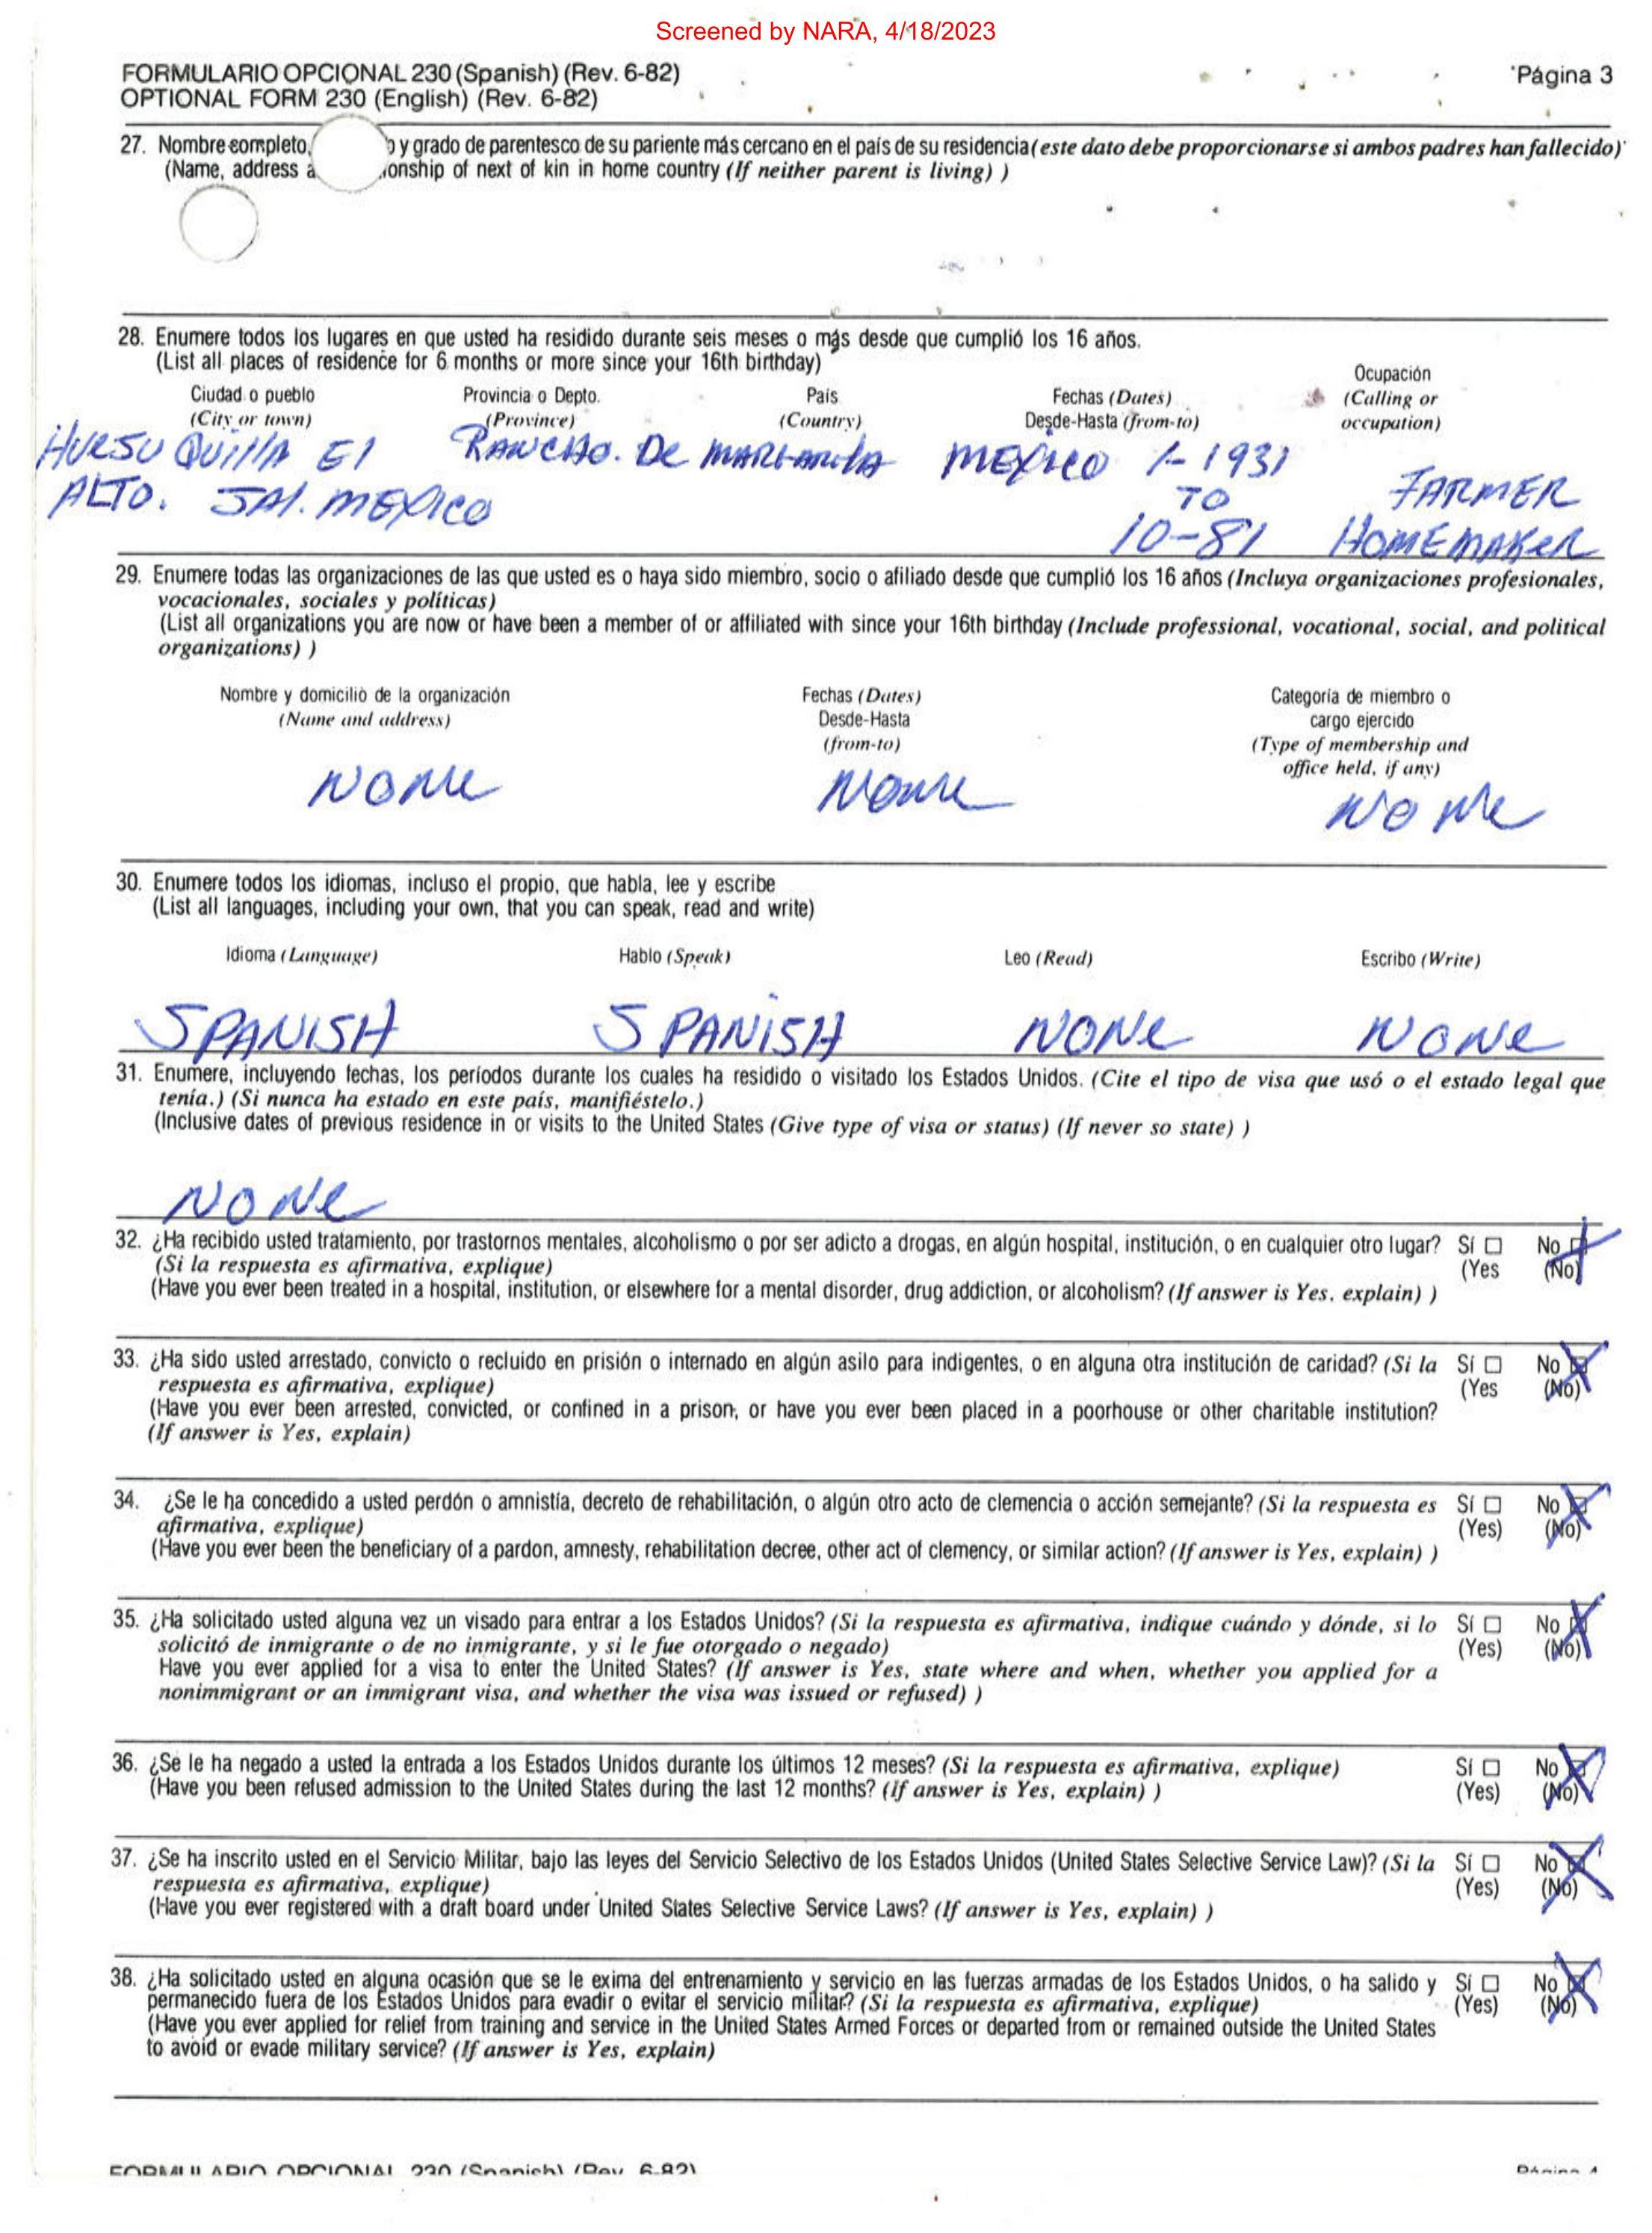 Screened by NARA, 4/18/2023
FORMULARIO OPCIONAL 230 (Spanish) (Rev. 6-82)
Página 3
OPTIONAL FORM 230 (English) (Rev. 6-82)
27. Nombre completo, y grado de parentesco de su pariente más cercano en el país de su residencia (este dato debe proporcionarse si ambos padres han fallecido)
(Name, address a ionship of next of kin in home country (If neither parent is living) )
28. Enumere todos los lugares en que usted ha residido durante seis meses o más desde que cumplió los 16 años.
(List all places of residence for 6 months or more since your 16th birthday)
Ciudad o pueblo Provincia o Depto. País Fechas (Dates) Ocupación
(City or town) (Province) (Country) Desde-Hasta (from-to) (Calling or
occupation)
HUESU QUIllA El RANCHO. De MEXICO 1-1931
ALTO. JAl. MEXICO TO FARMER
10-81 HOMEMAKER
29. Enumere todas las organizaciones de las que usted es o haya sido miembro, socio o afiliado desde que cumplió los 16 años (Incluya organizaciones profesionales,
vocacionales, sociales y políticas)
(List all organizations you are now or have been a member of or affiliated with since your 16th birthday (Include professional, vocational, social, and political
organizations) )
Nombre y domicilio de la organización Fechas (Dates) Categoría de miembro o
(Name and address) Desde-Hasta cargo ejercido
(from-to) (Type of membership and
office held, if any)
NONE NONE NONE
30. Enumere todos los idiomas, incluso el propio, que habla, lee y escribe
(List all languages, including your own, that you can speak, read and write)
Idioma (Language) Hablo (Speak) Leo (Read) Escribo (Write)
SPANISH SPANISH NONE NONE
31. Enumere, incluyendo fechas, los períodos durante los cuales ha residido o visitado los Estados Unidos. (Cite el tipo de visa que usó o el estado legal que
tenía.) (Si nunca ha estado en este país, manifiéstelo.)
(Inclusive dates of previous residence in or visits to the United States (Give type of visa or status) (If never so state) )
NONE
32. ¿Ha recibido usted tratamiento, por trastornos mentales, alcoholismo o por ser adicto a drogas, en algún hospital, institución, o en cualquier otro lugar? Sí ☐ No ☒
(Si la respuesta es afirmativa, explique) (Yes (No)
(Have you ever been treated in a hospital, institution, or elsewhere for a mental disorder, drug addiction, or alcoholism? (If answer is Yes, explain) )
33. ¿Ha sido usted arrestado, convicto o recluido en prisión o internado en algún asilo para indigentes, o en alguna otra institución de caridad? (Si la Sí ☐ No ☒
respuesta es afirmativa, explique) (Yes (No)
(Have you ever been arrested, convicted, or confined in a prison, or have you ever been placed in a poorhouse or other charitable institution?
(If answer is Yes, explain)
34. ¿Se le ha concedido a usted perdón o amnistía, decreto de rehabilitación, o algún otro acto de clemencia o acción semejante? (Si la respuesta es Sí ☐ No ☒
afirmativa, explique) (Yes) (No)
(Have you ever been the beneficiary of a pardon, amnesty, rehabilitation decree, other act of clemency, or similar action? (If answer is Yes, explain) )
35. ¿Ha solicitado usted alguna vez un visado para entrar a los Estados Unidos? (Si la respuesta es afirmativa, indique cuándo y dónde, si lo Sí ☐ No ☒
solicitó de inmigrante o de no inmigrante, y si le fue otorgado o negado) (Yes) (No)
Have you ever applied for a visa to enter the United States? (If answer is Yes, state where and when, whether you applied for a
nonimmigrant or an immigrant visa, and whether the visa was issued or refused) )
36. ¿Se le ha negado a usted la entrada a los Estados Unidos durante los últimos 12 meses? (Si la respuesta es afirmativa, explique) Sí ☐ No ☒
(Have you been refused admission to the United States during the last 12 months? (If answer is Yes, explain) ) (Yes) (No)
37. ¿Se ha inscrito usted en el Servicio Militar, bajo las leyes del Servicio Selectivo de los Estados Unidos (United States Selective Service Law)? (Si la Sí ☐ No ☒
respuesta es afirmativa, explique) (Yes) (No)
(Have you ever registered with a draft board under United States Selective Service Laws? (If answer is Yes, explain) )
38. ¿Ha solicitado usted en alguna ocasión que se le exima del entrenamiento y servicio en las fuerzas armadas de los Estados Unidos, o ha salido y Sí ☐ No ☒
permanecido fuera de los Estados Unidos para evadir o evitar el servicio militar? (Si la respuesta es afirmativa, explique) (Yes) (No)
(Have you ever applied for relief from training and service in the United States Armed Forces or departed from or remained outside the United States
to avoid or evade military service? (If answer is Yes, explain)
FORMULARIO OPCIONAL 230 (Spanish) (Rev. 6-82) Página 4